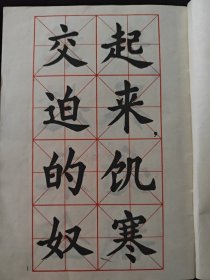 起来饥寒
交迫的奴